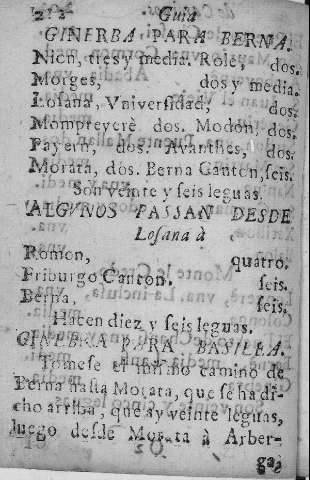 212 Guia
GINEBRA PARA BERNA.
Nien, tres y media. Role, dos.
Morges, dos y media.
Losana, Vniversidad, dos.
Mompreverè dos. Modon, dos.
Payern, dos. Avanthes, dos.
Morata, dos. Berna Canton, seis.
Son veinte y seis leguas.
ALGVNOS PASSAN DESDE
Losana à
Romon, quatro.
Friburgo Canton. seis.
Berna, seis.
Hacen diez y seis leguas.
GINEBRA PARA BASILEA.
Tomese el mismo camino de
Berna hasta Morata, que se ha di-
cho arriba, que ay veinte leguas,
luego desde Morata à Arber-
ga,